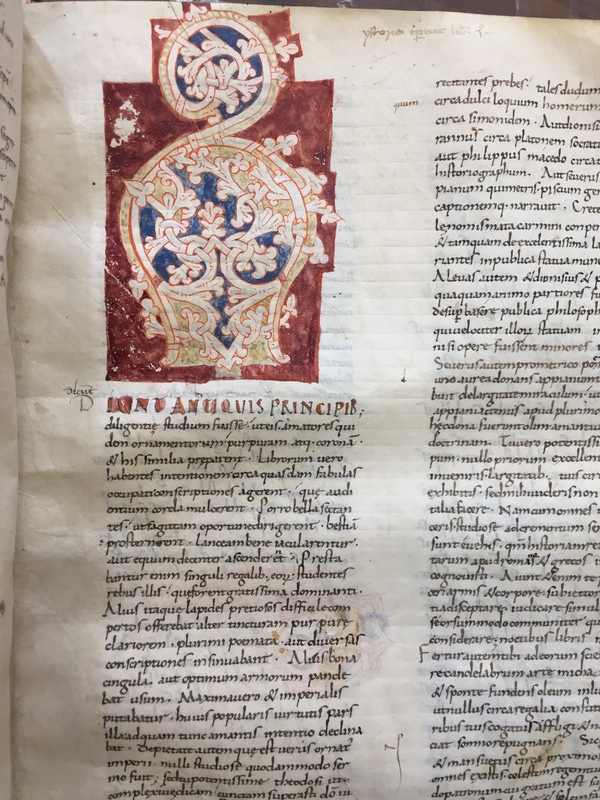 IUNT ANTIQUIS PRINCIPIB;
diligentie studium fuisse · uteis amatores qui
dem ornamentorum purpuram atq; coronā ·
& his similia preparent · Librorum uero
habentes intentionem circa quasdam fabulas
occupati conscriptiones agerent · que audi
entium corda mulcerent · Porro bella sectan
tes · ut sagittam oportune dirigerent · bestiā
prosternerent · lanceam bene iacularentur ·
aut equum decenter ascenderēt · Presta
bantur enim singuli regalib; eorū studentes
rebus illis · que forent gratissima dominanti ·
Alius itaque lapides pretiosos difficile com
pertos offerebat · alter tincturam purpure
clariorem · plurimi poemata · aut diuersas
conscriptiones insinuabant · Alius bona
cingula · aut optimum armorum pande
bat usum · Maxima uero & imperialis
putabatur · huius popularis uirtutis pars
illa ad quam tunc amantis intentio declina
bat · De pietate autem que est uerus ornat'
imperii · nulli studiosē quodammodo ser
mo fuit; sed u potentissime theodosi ut
recitantes prebes · tales dudum
circa dulciloquum homerum
circa simonidem · Aut dionisi
rannus circa platonem socrat
aut philippus macedo circa
historiographum · Aut seuerus
pianum qui metris piscium gen
captionemq; narrauit · Crete
le nomis mata carmini conpe
& tamquam de excelentissima
riantes in publica statua
Aleuas autem & dionisius & p
quaquam animo partiores fu
publica philosoph
qui uelociter illorū statuam in
nisi opere fuissent minores
Seuerus autem pro metrico
uno aurea donans appianum
buit de largitate miraculum
appiani actenus apud plurimo
hecdona fuerunt olim amantiu
doctrinam · Tu uero potentissi
pum · nullo priorum excellen
inueniris largitatib; tuis cir
exhibitis · sed mihi uideris non
talia facere · Nam cum omnel
ceris studiose ad certonum ser
sunt euehis · qm̄ historiam re
tarum apud romanos & grecos
cognouisti · Aiunt enim te p
cenarmis & corpore · subiector
tia disceptare · iudicare simul
& seorsum modo communiter
considerare · noctibus libris
Fertur autem tibi ad eorum scie
re candelabrum arte micha
& sponte fundens oleum in
ut nullus circa regalia consti
ribus tuis cogitus affligi &
ciat somno repugnans ·
& mansuetus circa proximo
omnes existis · celestem regem